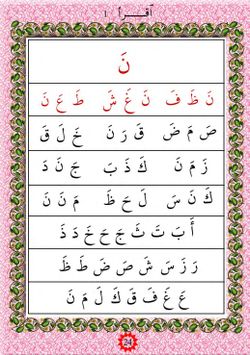 اقرأ ١
نَ
نَ ظَ فَ نَ غَ شَ طَ عَ نَ
صَ مَ ضَ قَ رَ نَ خَ لَ قَ
زَ مَ نَ كَ ذَ بَ جَ نَ دَ
كَ نَ سَ لَ حَ ظَ مَ نَ نَ
أَ بَ تَ ثَ جَ حَ خَ دَ ذَ
رَ زَ سَ شَ صَ ضَ طَ ظَ
عَ غَ فَ قَ كَ لَ مَ نَ
24